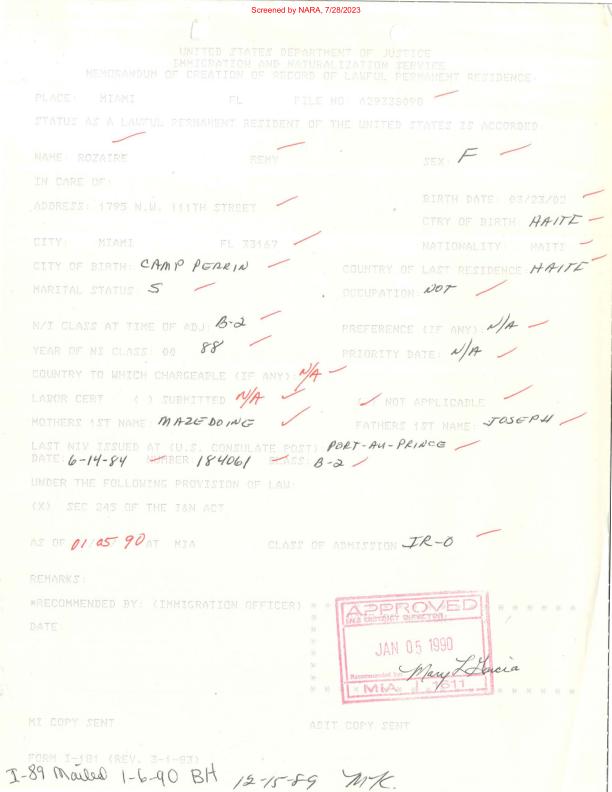 Screened by NARA, 7/28/2023
UNITED STATES DEPARTMENT OF JUSTICE
IMMIGRATION AND NATURALIZATION SERVICE
MEMORANDUM OF CREATION OF RECORD OF LAWFUL PERMANENT RESIDENCE
PLACE: MIAMI FL FILE NO: A29338090
STATUS AS A LAWFUL PERMANENT RESIDENT OF THE UNITED STATES IS ACCORDED:
NAME: ROZAIRE REMY SEX: F
IN CARE OF:
ADDRESS: 1795 N.W. 111TH STREET BIRTH DATE: 03/23/02
CTRY OF BIRTH: HAITI
CITY: MIAMI FL 33167 NATIONALITY: HAITI
CITY OF BIRTH: CAMP PERRIN COUNTRY OF LAST RESIDENCE: HAITI
MARITAL STATUS: S OCCUPATION: NOT
N/I CLASS AT TIME OF ADJ: B-2 PREFERENCE (IF ANY): N/A
YEAR OF NI CLASS: 00 88 PRIORITY DATE: N/A
COUNTRY TO WHICH CHARGEABLE (IF ANY): N/A
LABOR CERT ( ) SUBMITTED N/A ( ) NOT APPLICABLE
MOTHERS 1ST NAME: MAZEDOINE FATHERS 1ST NAME: JOSEPH
LAST NIV ISSUED AT (U.S. CONSULATE POST): PORT-AU-PRINCE
DATE: 6-14-84 NUMBER: 184061 CLASS: B-2
UNDER THE FOLLOWING PROVISION OF LAW:
(X) SEC 245 OF THE I&N ACT
AS OF 01/05/90 AT MIA CLASS OF ADMISSION IR-0
REMARKS:
*RECOMMENDED BY: (IMMIGRATION OFFICER)
DATE:
APPROVED
INS DISTRICT DIRECTOR
JAN 05 1990
Recommended by: Mary L Garcia
MIA 1611
MI COPY SENT ADIT COPY SENT
FORM I-181 (REV. 3-1-83)
I-89 Mailed 1-6-90 BH 12-15-89 MK.